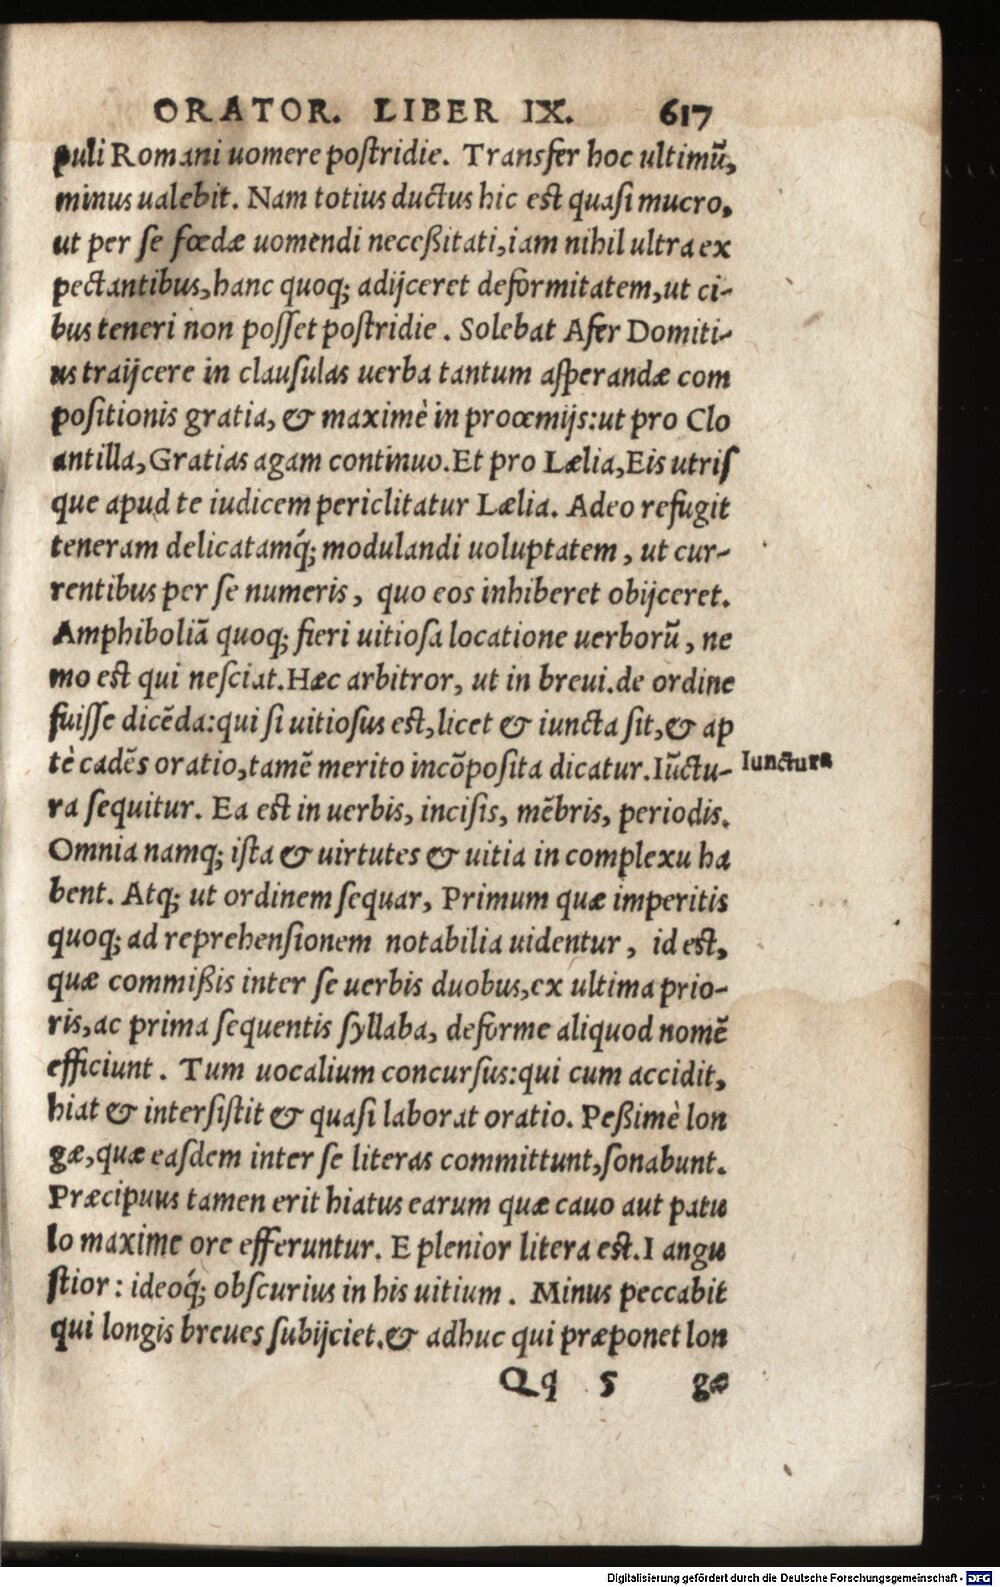 ORATOR. LIBER IX. 617
puli Romani uomere postridie. Transfer hoc ultimũ,
minus ualebit. Nam totius ductus hic est quasi mucro,
ut per se fœdæ uomendi neceßitati, iam nihil ultra ex
pectantibus, hanc quoq; adijceret deformitatem, ut ci-
bus teneri non posset postridie. Solebat Afer Domiti-
us traijcere in clausulas uerba tantum asperandæ com
positionis gratia, & maximè in proœmijs: ut pro Clo
antilla, Gratias agam continuo. Et pro Lælia, Eis utris
que apud te iudicem periclitatur Lælia. Adeo refugit
teneram delicatamq́; modulandi uoluptatem, ut cur-
rentibus per se numeris, quo eos inhiberet obijceret.
Amphiboliã quoq; fieri uitiosa locatione uerborũ, ne
mo est qui nesciat. Hæc arbitror, ut in breui. de ordine
fuisse dicẽda: qui si uitiosus est, licet & iuncta sit, & ap
tè cadẽs oratio, tamẽ merito incõposita dicatur. Iũctu- Iunctura
ra sequitur. Ea est in uerbis, incisis, mẽbris, periodis.
Omnia namq; ista & uirtutes & uitia in complexu ha
bent. Atq; ut ordinem sequar, Primum quæ imperitis
quoq; ad reprehensionem notabilia uidentur, id est,
quæ commißis inter se uerbis duobus, ex ultima prio-
ris, ac prima sequentis syllaba, deforme aliquod nomẽ
efficiunt. Tum uocalium concursus: qui cum accidit,
hiat & intersistit & quasi laborat oratio. Peßimè lon
gæ, quæ easdem inter se literas committunt, sonabunt.
Præcipuus tamen erit hiatus earum quæ cauo aut patu
lo maxime ore efferuntur. E plenior litera est. I angu
stior: ideoq́; obscurius in his uitium. Minus peccabit
qui longis breues subijciet. & adhuc qui præponet lon
Qq 5 gæ
Digitalisierung gefördert durch die Deutsche Forschungsgemeinschaft - DFG